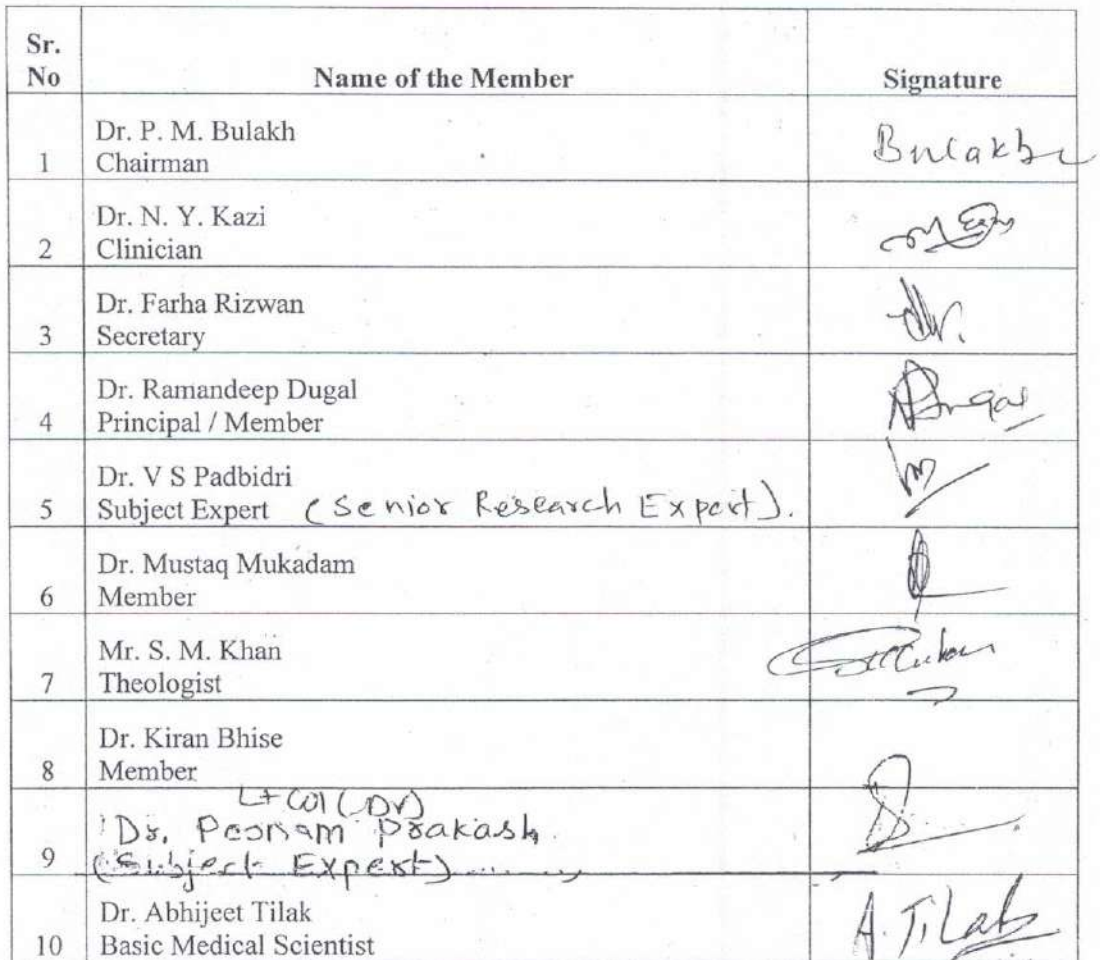 Sr.
No
Name of the Member
Signature
Dr. P. M. Bulakh
1 Chairman
Bulakh
Dr. N. Y. Kazi
2 Clinician
Dr. Farha Rizwan
3 Secretary
Dr. Ramandeep Dugal
4 Principal / Member
Dr. V S Padbidri
5 Subject Expert (Senior Research Expert).
Dr. Mustaq Mukadam
6 Member
Mr. S. M. Khan
7 Theologist
Dr. Kiran Bhise
8 Member
Lt Col (Dr)
Dr. Poonam Prakash
9 (Subject Expert)
Dr. Abhijeet Tilak
10 Basic Medical Scientist
A. Tilak